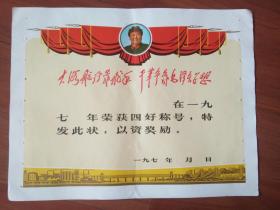 大海航行靠舵手 干革命靠毛泽东思想
在一九
七 年荣获四好称号，特
发此状，以资奖励。
一九七 年 月 日